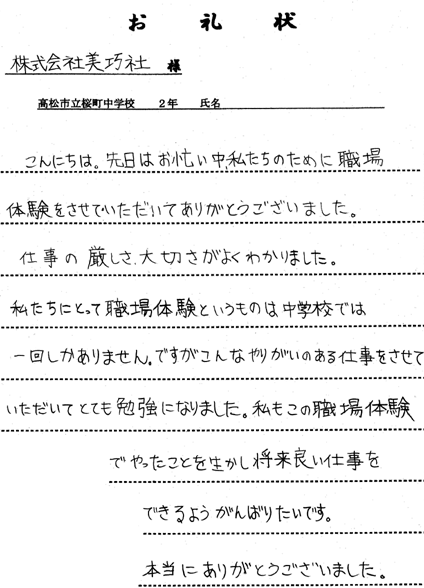 お礼状
株式会社美巧社 様
高松市立桜町中学校 2年 氏名
こんにちは。先日はお忙い中、私たちのために職場
体験をさせていただいてありがとうございました。
仕事の厳しさ、大切さがよくわかりました。
私たちにとって職場体験というものは中学校では
一回しかありません。ですがこんなやりがいのある仕事をさせて
いただいてとても勉強になりました。私もこの職場体験
でやったことを生かし将来良い仕事を
できるようがんばりたいです。
本当にありがとうございました。